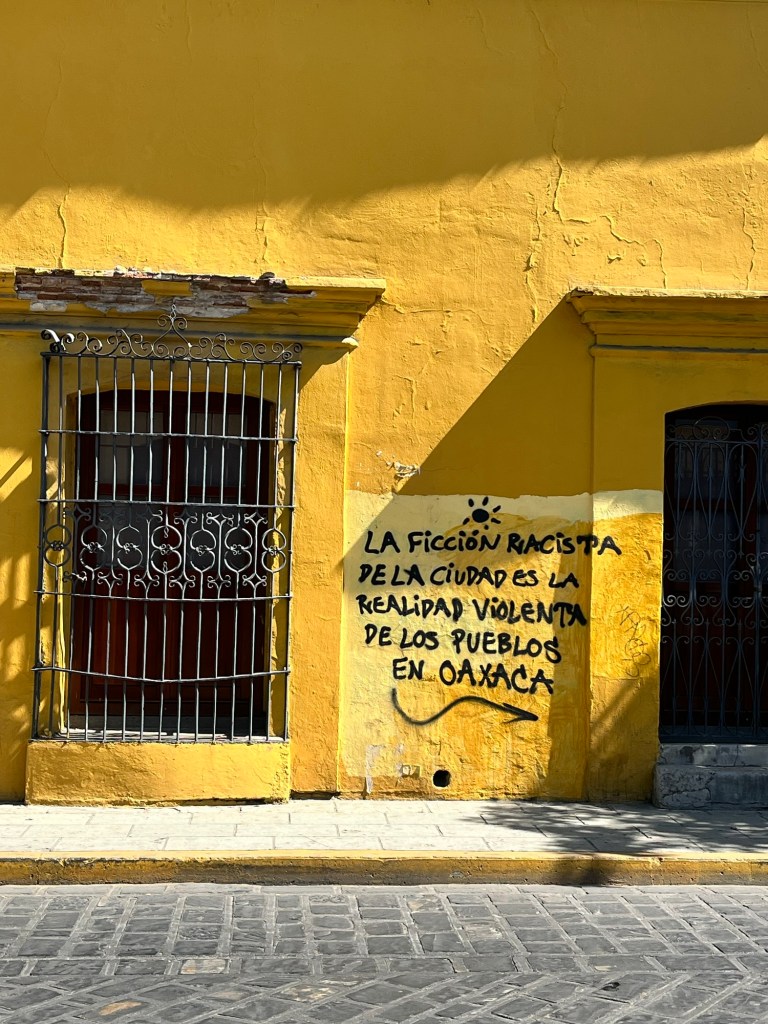 LA FICCIÓN RACISTA
DE LA CIUDAD ES LA
REALIDAD VIOLENTA
DE LOS PUEBLOS
EN OAXACA